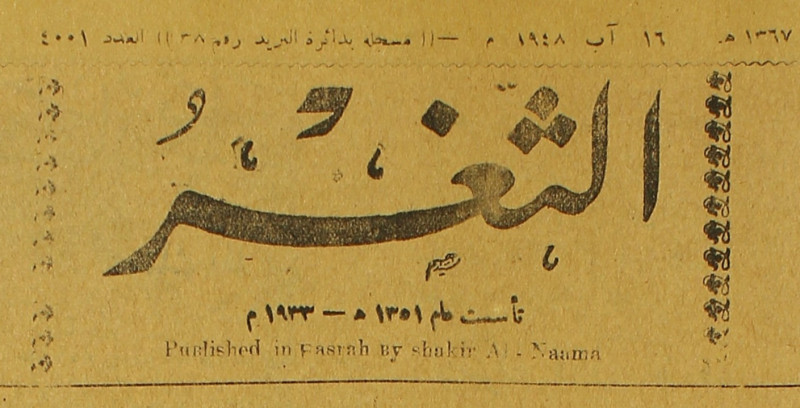 ١٣٦٧ هـ ١٦ آب ١٩٤٨ م —(( مسجله بدائرة البريد رقم ٣٨ )) العدد ٤٠٠١
الثغر
تأسست عام ١٣٥١ هـ — ١٩٣٣ م
Published in Basrah By shakir Al - Naama